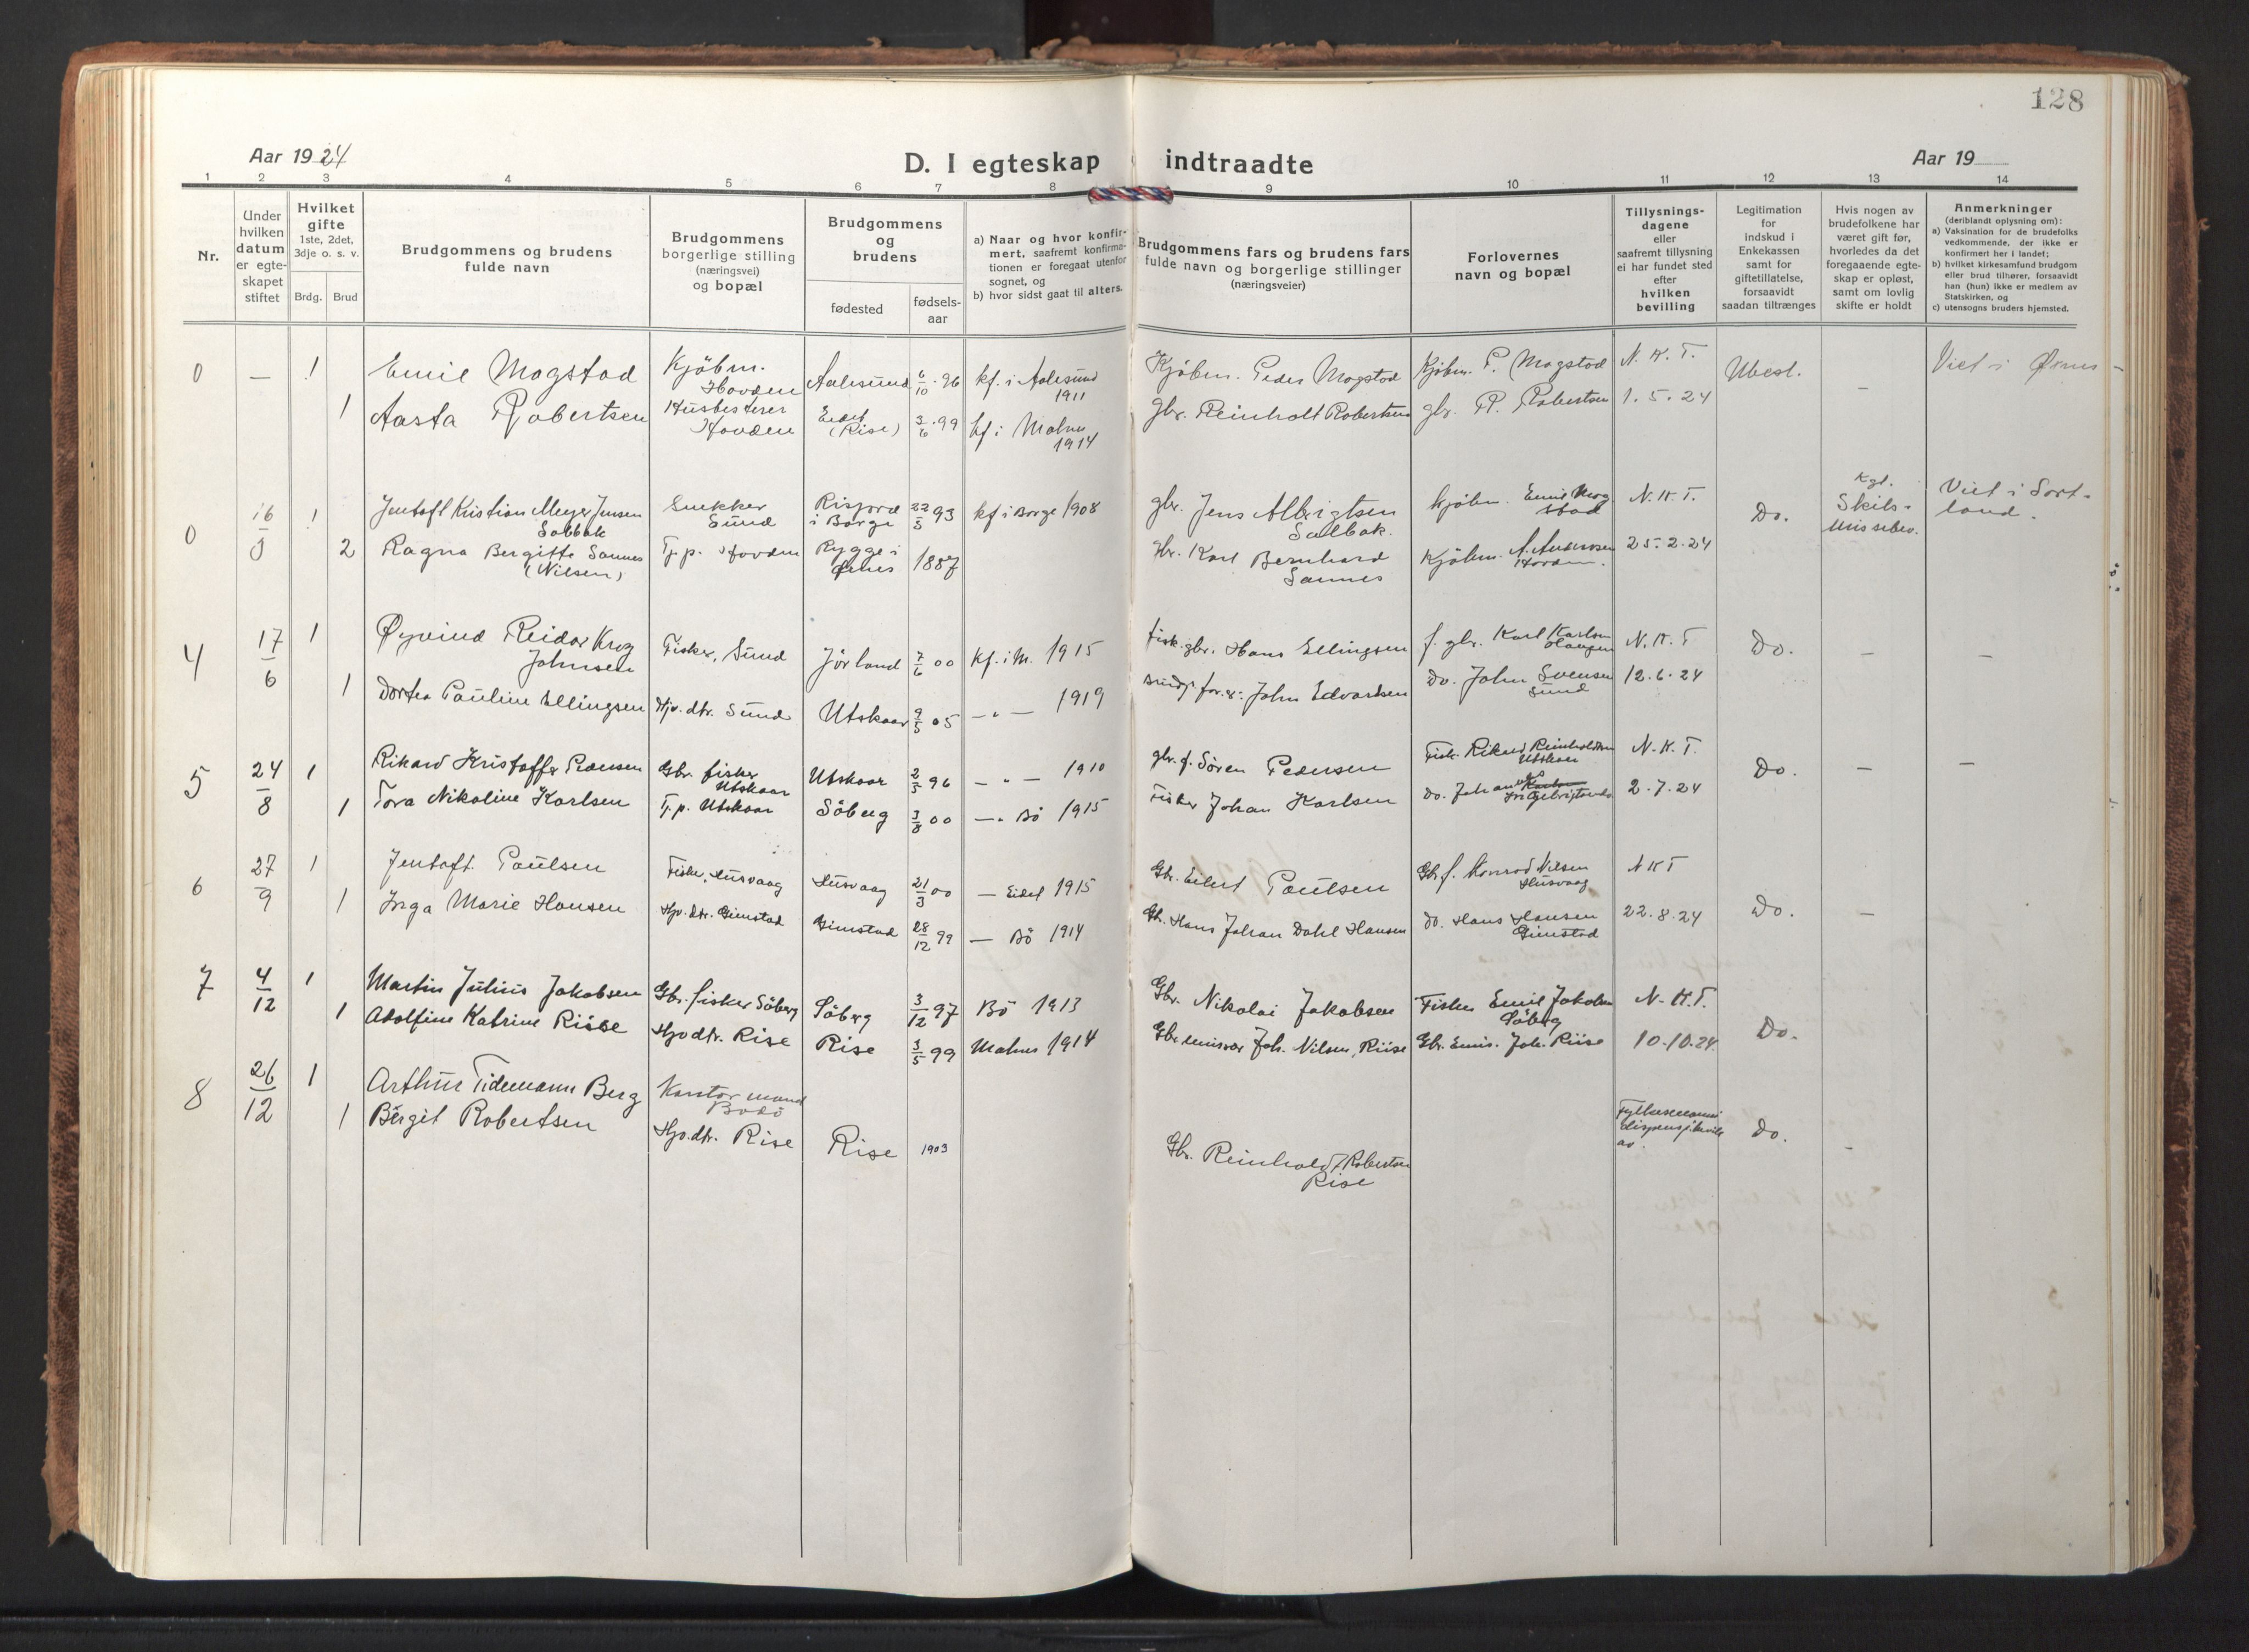 128
Aar 1924
D. I egteskap indtraadte
Aar 19
1 2 3 4 5 6 7 8 9 10 11 12 13 14
Nr.
Under
hvilken
datum
er egte-
skapet
stiftet
Hvilket
gifte
1ste, 2det,
3dje o. s. v.
Brdg. Brud
Brudgommens og brudens
fulde navn
Brudgommens
borgerlige stilling
(næringsvei)
og bopæl
Brudgommens
og
brudens
fødested
fødsels-
aar
a) Naar og hvor konfir-
mert, saafremt konfirma-
tionen er foregaat utenfor
sognet, og
b) hvor sidst gaat til alters.
Brudgommens fars og brudens fars
fulde navn og borgerlige stillinger
(næringsveier)
Forlovernes
navn og bopæl
Tillysnings-
dagene
eller
saafremt tillysning
ei har fundet sted
efter
hvilken
bevilling
Legitimation
for
indskud i
Enkekassen
samt for
giftetillatelse,
forsaavidt
saadan tiltrænges
Hvis nogen av
brudefolkene har
været gift før,
hvorledes da det
foregaaende egte-
skap er opløst,
samt om lovlig
skifte er holdt
Anmerkninger
(deriblandt oplysning om):
a) Vaksination for de brudefolks
vedkommende, der ikke er
konfirmert her i landet;
b) hvilket kirkesamfund brudgom
eller brud tilhører, forsaavidt
han (hun) ikke er medlem av
Statskirken, og
c) utensogns bruders hjemsted.
0 — 1 Emil Mogstad Kjøbm. Hovden Aalesund 6/10 96 kf. i Aalesund 1911 Kjøbm. Peder Mogstad Kjøbm. P. Mogstad N. K. T. Ubest. — Viet i Øxnes
1 Aasta Robertsen Husbestyrer Hovden Eidet (Rise) 3/6 99 kf i Malnes 1914 gbr. Reinholt Robertsen gbr. R. Robertsen 1. 5. 24
0 16/3 1 Jentoft Kristian Meyer Jensen Solbak Snekker Sund Risjord i Borge 22/5 93 kf i Borge 1908 gbr. Jens Albrigtsen Solbak. Kjøbm. Emil Mogstad N. K. T. Do. Kgl. Skils- Viet i Sort-
land.
2 Ragna Bergitte Sannes (Nilsen) Tj. p. Hovden Rygge i Øxnes 1887 Gbr. Karl Bernhard Sannes Kjøbm. A. Andersen Hovden. 25. 2. 24
4 17/6 1 Øyvind Reidar Krog Johnsen Fisker, Sund Jörland 7/6 00 Kf. i M. 1915 fisk. gbr. Hans Ellingsen f. gbr. Karl Karlsen N. K. T Do. — —
1 Dortea Pauline Ellingsen Hjv. dtr. Sund Utskaar 9/5 05 — " — 1919 John Edvardsen Do. John Svensen Sund 12. 6. 24
5 24/8 1 Rikard Kristoffer Pedersen Gbr. fisker Utskaar Utskaar 2/5 96 — " — 1910 gbr. f. Sören Pedersen Fisk. Rikard Reinholdtsen Utskaar N. K. T. Do. — —
1 Tora Nikoline Karlsen Tj. p. Utskaar Söberg 3/8 00 — " Bö 1915 Fisker Johan Karlsen Do. Johan 2. 7. 24
6 27/9 1 Jentoft Paulsen Fisker, Husvaag Husvaag 21/3 00 — Eidet 1915 Gbr. Eilert Paulsen Gbr. f. Konrad Nilsen Husvaag N K T
1 Inga Marie Hansen Hjv. dtr. Gimstad Gimstad 28/12 99 — Bö 1914 Gbr. Hans Johan Dahl Hansen Do. Hans Hansen Gimstad 22. 8. 24 Do. —
7 4/12 1 Martin Julius Jakobsen Gbr. fisker Söberg Söberg 3/12 97 Bö 1913 Gbr. Nikolai Jakobsen Fisker Emil Jakobsen Söberg N. K. T.
1 Adolfine Katrine Riise Hjv dtr. Rise Rise 3/5 99 Malnes 1914 Gbr. emissær Joh. Nilsen, Riise Gbr. Emis. Joh. Riise 10. 10. 24. Do.
8 26/12 1 Arthur Tidemann Berg Kontormand Bodö
1 Bergit Robertsen Hjv. dtr. Rise Rise 1903 Gbr. Reinholdt Robertsen Rise Do. —